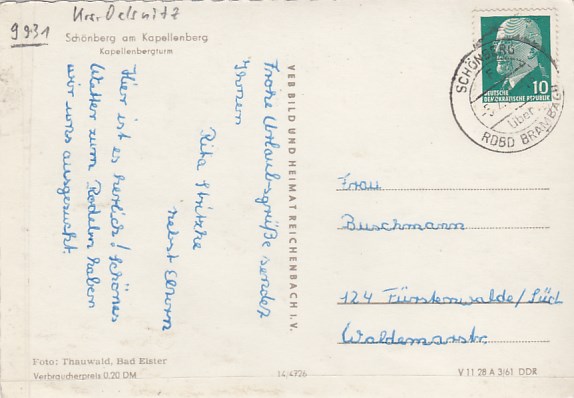 9931
Krs. Oelsnitz
Schönberg am Kapellenberg
Kapellenbergturm
Frohe Urlaubsgrüße sendet
Ihnen
Rita Stritzke
nebst Eltern
Hier ist es herrlich! Schönes
Wetter zum Rodeln haben
wir uns ausgesucht.
VEB BILD UND HEIMAT REICHENBACH I. V.
10
DEUTSCHE
DEMOKRATISCHE REPUBLIK
SCHÖNBERG
über
RDBD BRAMBACH
Frau
Buschmann
124 Fürstenwalde/Süd
Waldemarstr.
Foto: Thauwald, Bad Elster
Verbraucherpreis 0,20 DM
14/4726
V 11 28 A 3/61 DDR